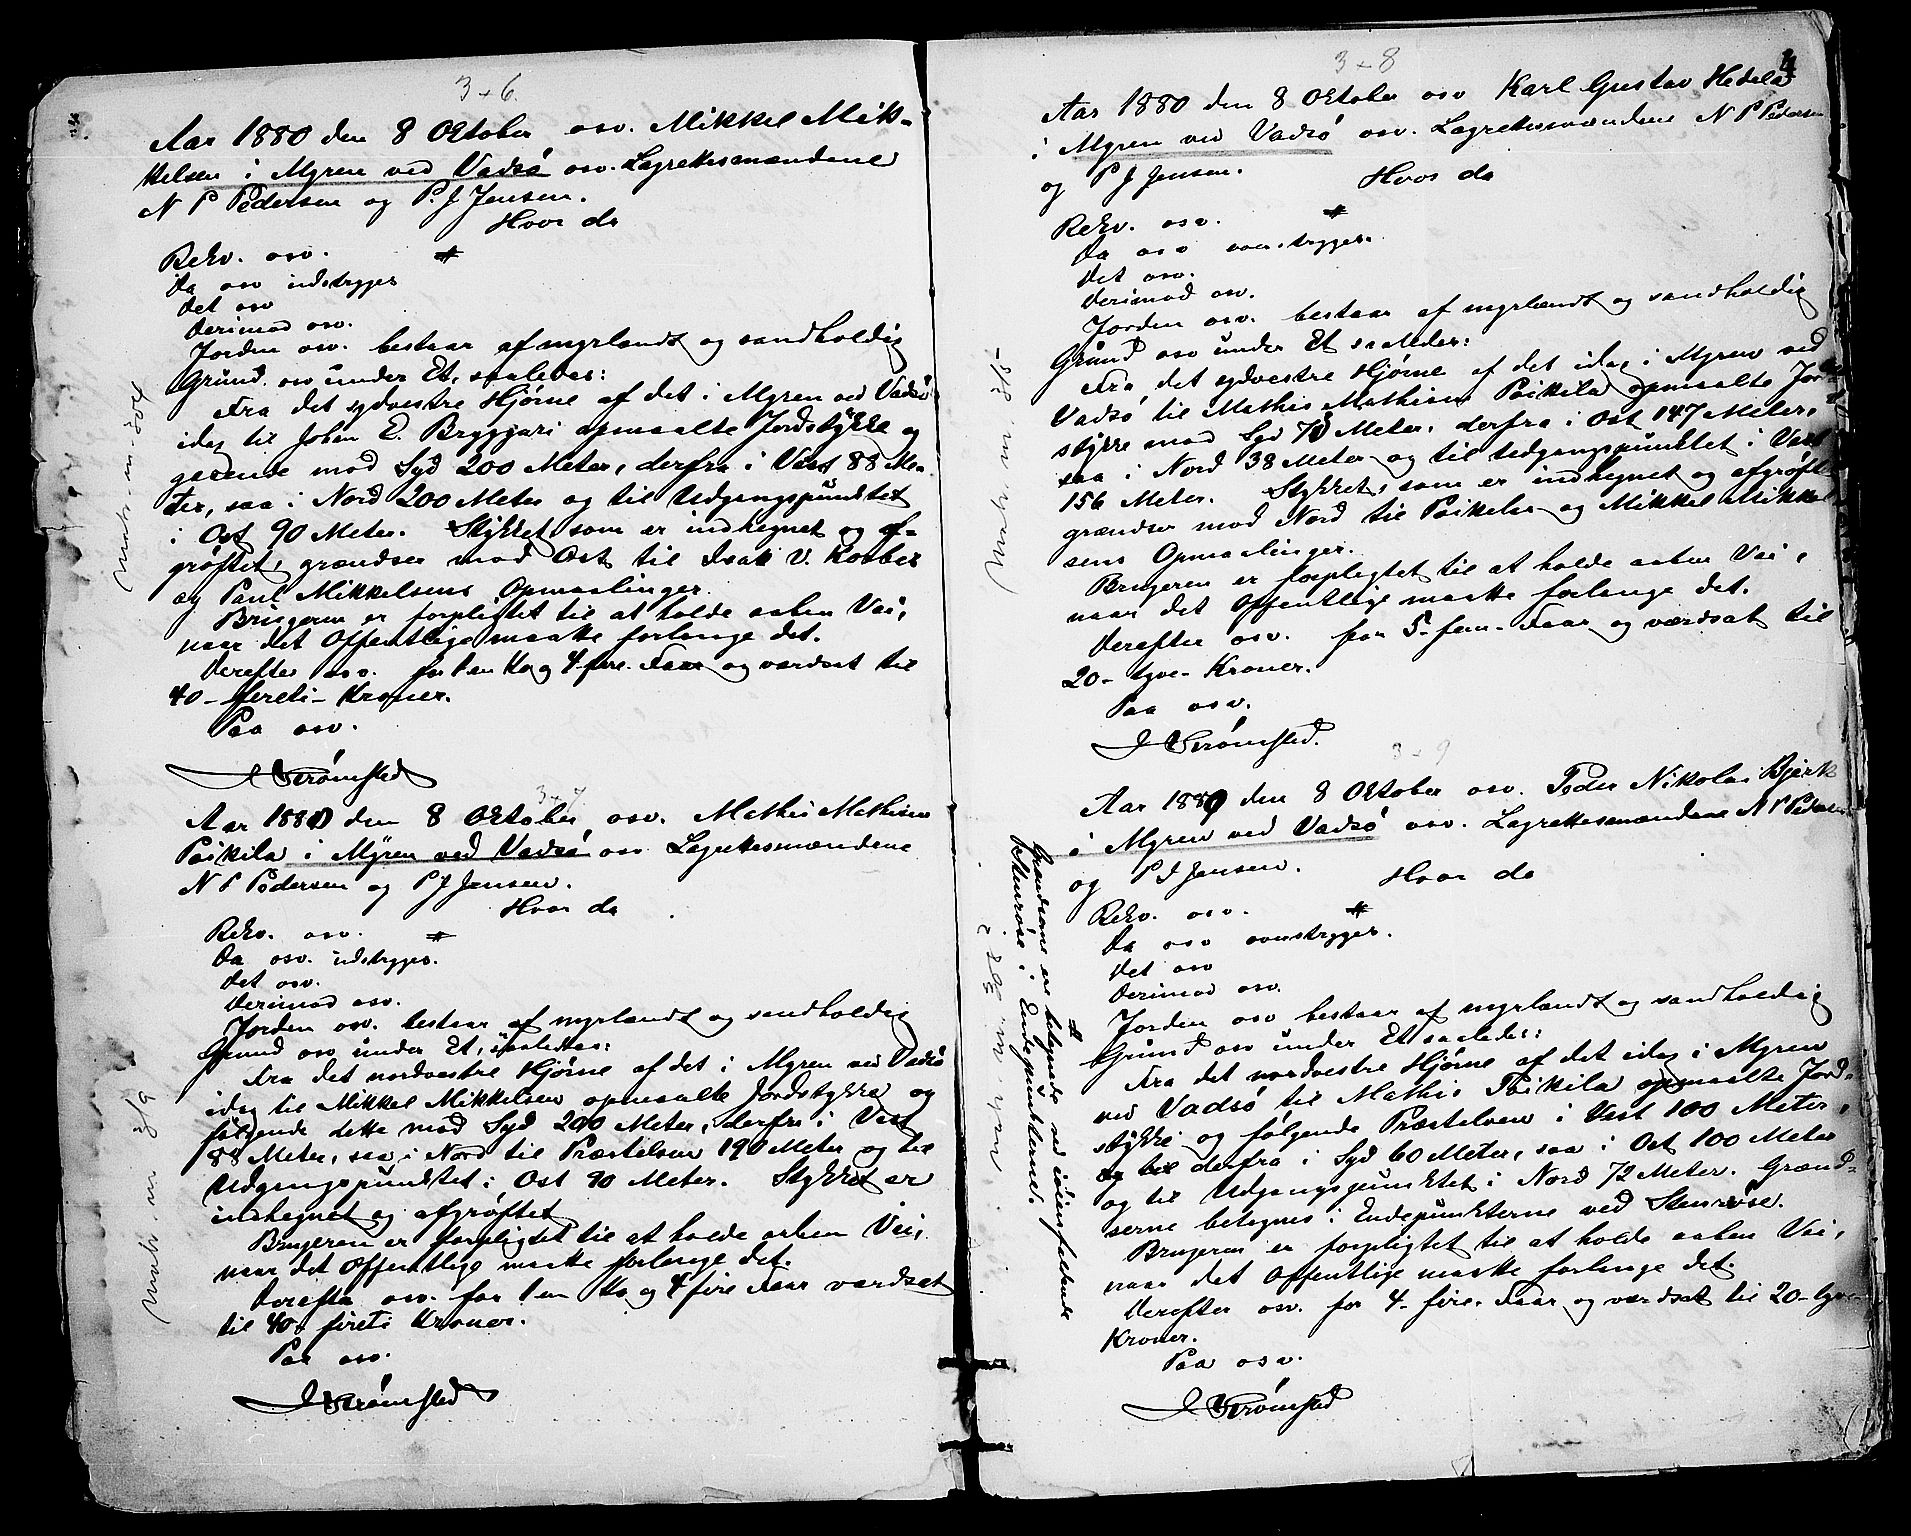 3 + 6.
Aar 1880 den 8 Oktober osv. Mikkel Mik-
kelsen i Myren ved Vadsö osv. Lagrettesmændene
N P Pedersen og P. J Jensen.
Hvor da
Rekv. osv. #
Da osv udstryges
Det osv
Derimod osv.
Jorden osv. bestaar af myrlændt og sandholdig
Grund osv under Et, saaledes:
Fra det sydvestre Hjørne af det i Myren ved Vadsö
idag til Johan E. Bryggari opmaalte Jordstykke og
gaaende mod Syd 200 Meter, derfra i Vest 88 Me-
ter, saa i Nord 200 Meter og til Udgangspunktet
i Ost 90 Meter. Stykket som er indhegnet og af-
grøftet, grændser mod Ost til Isak V. Kobbes
og Paul Mikkelsens Opmaalinger.
Brugeren er forpligtet til at holde aaben Vei,
naar det Offentlige maatte forlange det.
Derefter osv. for 1 en Ko og 4-fire-Faar og værdsat til
40-fireti-Kroner.
Paa osv.
J Strömsted
3 + 7
Aar 1880 den 8 Oktober osv. Mathis Mathisen
Poikila i Myren ved Vadsö osv Lagrettesmændene
N P Pedersen og P J Jensen.
Hvor da
Rekv. osv. #
Da osv. udstryges.
Det osv.
Derimod osv.
Jorden osv. bestaar af myrlændt og sandholdig
Grund osv under Et, saaledes:
Fra det nordvestre Hjørne af det i Myren ved Vadsö
idag til Mikkel Mikkelsen opmaalte Jordstykke og
følgende dette mod Syd 200 Meter, derfra i Vest
88 Meter, saa i Nord til Præstelven 190 Meter og til
Udgangspunktet i Ost 90 Meter. Stykket er
indhegnet og afgrøftet
Brugeren er forpligtet til at holde aaben Vei,
naar det Offentlige maatte forlange det.
Derefter osv. for 1 en Ko og 4 fire Faar værdsat
til 40-fireti Kroner.
Paa osv.
J Strömsted
3 + 8
4
Aar 1880 den 8 Oktober osv Karl Gustav Hedela
i Myren ved Vadsö osv. Lagrettesmændene N P Pedersen
og P J Jensen. Hvor da
Rekv. osv. #
Da osv overstryges.
Det osv.
Derimod osv.
Jorden osv. bestaar af myrlændt og sandholdig
Grund osv under Et saaledes:
Fra det sydvestre Hjørne af det idag i Myren ved
Vadsö til Mathis Mathisen Poikila opmaalte Jord-
stykke mod Syd 70 Meter, derfra i Ost 147 Meter,
saa i Nord 38 Meter og til Udgangspunktet i Vest
156 Meter. Stykket, som er indhegnet og afgrøftet
grændser mod Nord til Poikelas og Mikkel Mikkel
sens Opmaalinger.
Brugeren er forpligtet til at holde aaben Vei,
naar det Offentlige maatte forlange det.
Derefter osv. for 5-fem-Faar og værdsat til
20-tyve-Kroner.
Paa osv.
J Strömsted.
3 + 9
Aar 1880 den 8 Oktober osv. Peder Nikolai Bjerk
i Myren ved Vadsö osv. Lagrettesmændene N P Pedersen
og P J Jensen. Hvor da
Rekv. osv. #
Da osv overstryges.
Det osv
Derimod osv.
Jorden osv bestaar af myrlændt og sandholdig
Grund osv under Et saaledes:
Fra det nordvestre Hjørne af det idag i Myren
ved Vadsö til Mathis Poikila opmaalte Jord-
stykke og følgende Præstelven i Vest 100 Meter,
og til derfra i Syd 60 Meter, saa i Ost 100 Meter
og til Udgangspunktet i Nord 72 Meter. Grænd-
serne betegnes i Endepunkterne ved Stenrøse.
Brugeren er forpligtet til at holde aaben Vei,
naar det Offentlige maatte forlange det.
Derefter osv. for 4-fire-Faar og værdsat til 20-tyve-
Kroner.
Paa osv.
J Strömsted
# Grændserne ere betegnede ved iöienfaldende
Stenrøse i Endepunkterne.